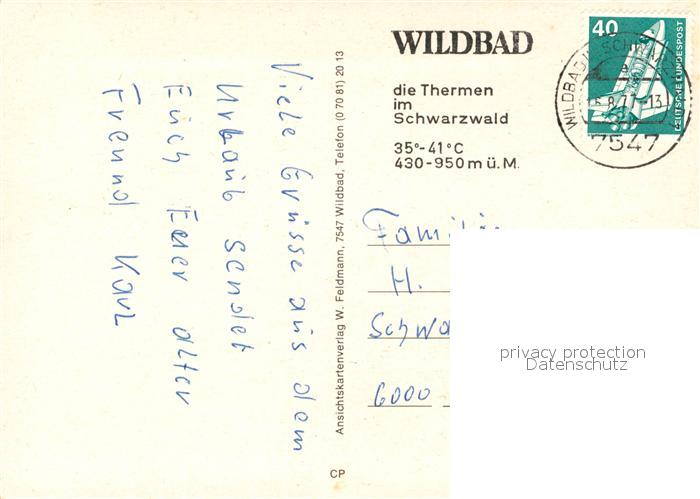 Viele Grüsse aus dem
Urlaub sendet
Euch Euer alter
Freund Karl
Ansichtskartenverlag W. Feldmann, 7547 Wildbad, Telefon (0 70 81) 20 13
CP
WILDBAD
die Thermen
im
Schwarzwald
35°-41°C
430-950 m ü. M.
40
DEUTSCHE BUNDESPOST
WILDBAD
7547
Familie
H.
6000
privacy protection
Datenschutz